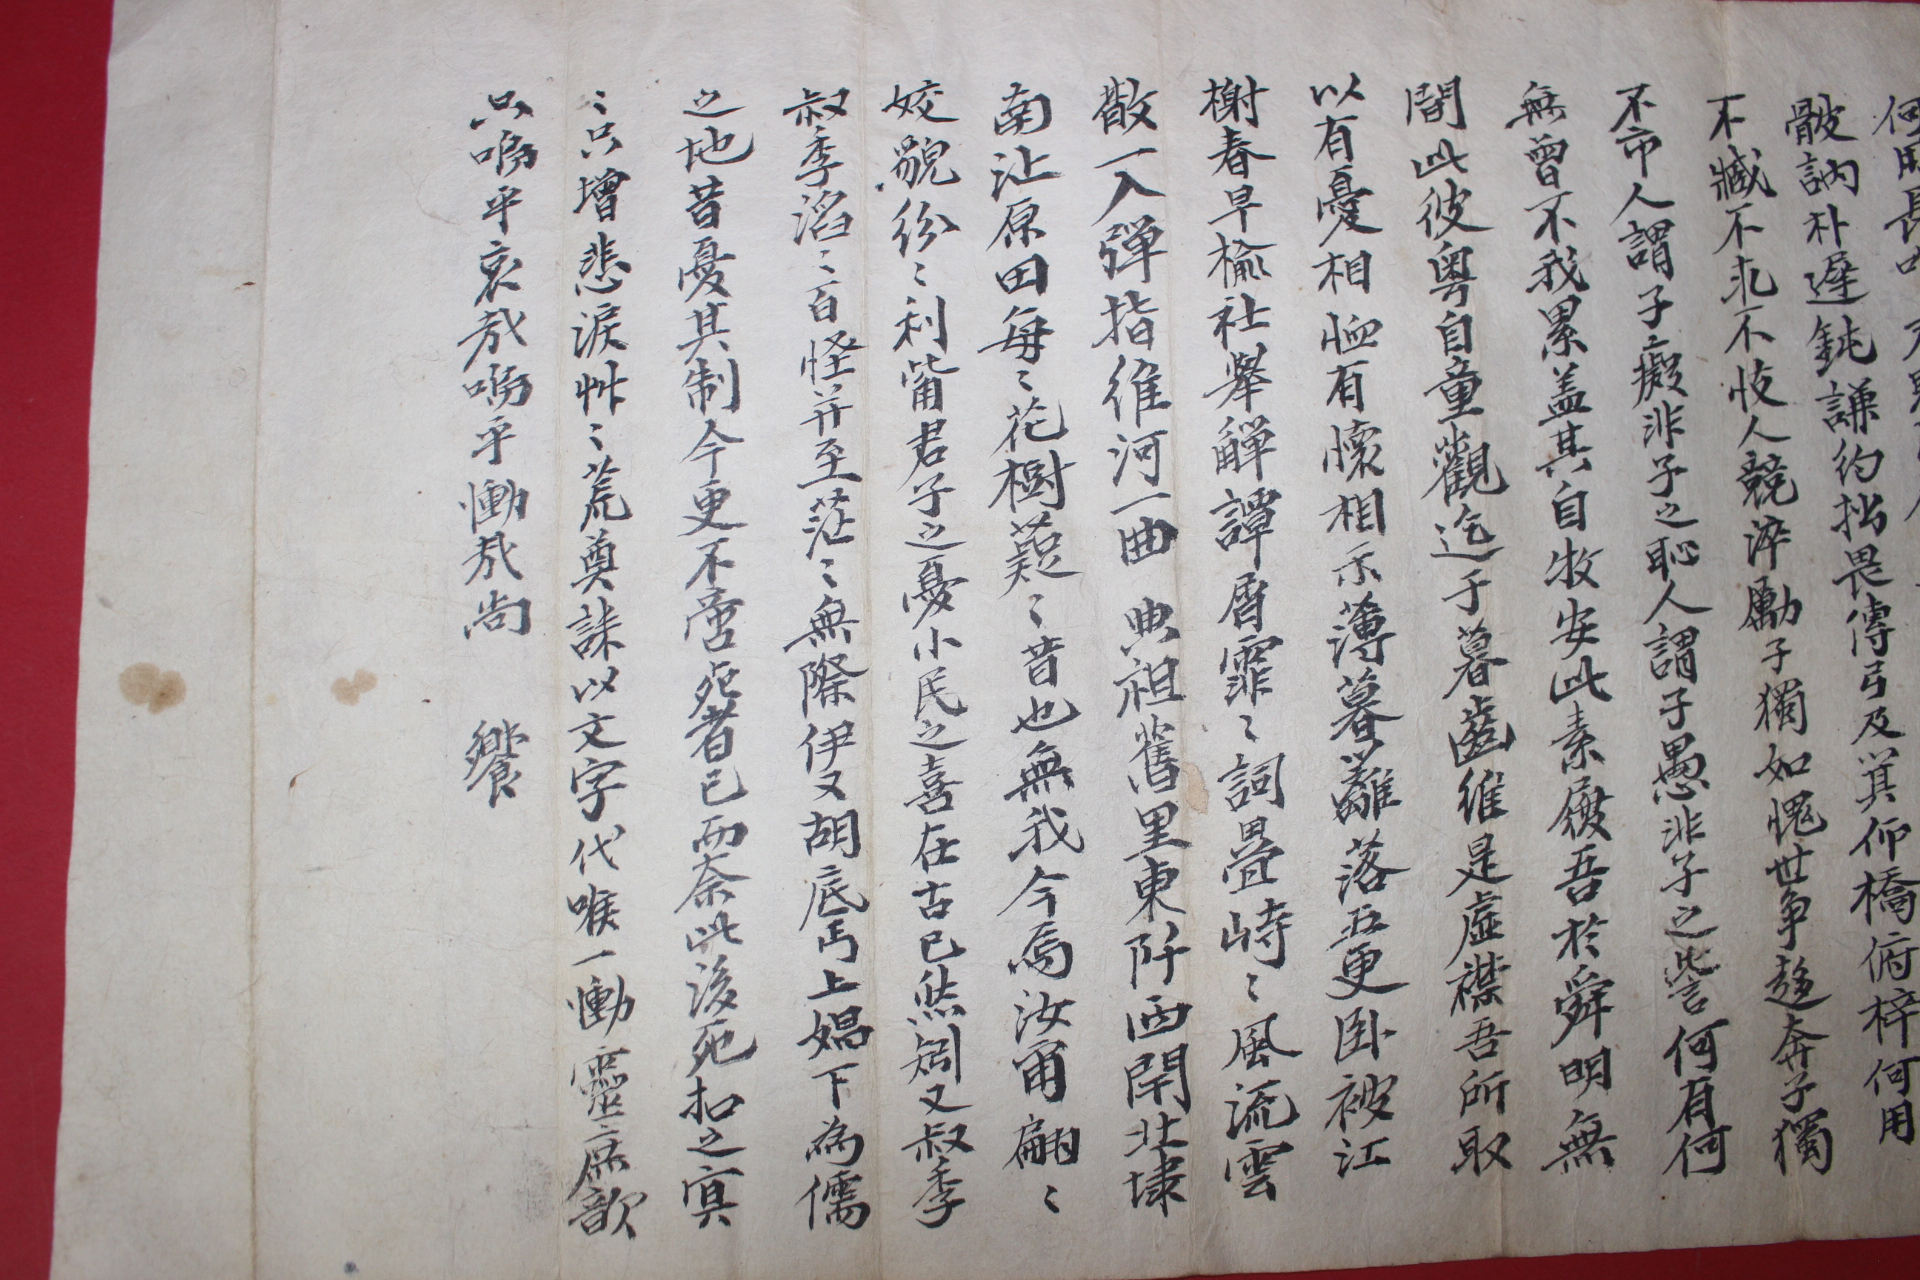 骳訥朴遲鈍謙約拙畏傳弓及箕仰橋俯梓何用
不臧不求不忮人競淬勵子獨如愧世爭趍奔子獨
不市人謂子癡非子之恥人謂子愚非子之訾何有何
無曾不我累盖其自牧安此素履吾於舜明無
間此彼粤自童觀迄于暮齒維是虛襟吾所取
以有憂相恤有懷相示薄暮籬落五更卧被江
榭春早楡社擧觶譚屑霏〻詞疊峙〻風流雲
散一入彈指維河一曲典祖舊里東阡西閈北埭
南沚原田每〻花樹薿〻昔也無我今焉汝甭翩〻
姣貌份〻利觜君子之憂小民之喜在古已然矧又叔季
叔季滔〻百怪幷至茫〻無際伊又胡底丐上娼下為儒
之地昔憂其制今更不啻死者已而奈此後死扣之寞
〻只增悲淚艸〻荒奠誄以文字代喉一慟靈庶歆
只嗚乎哀㦲嗚乎慟㦲尚
饗